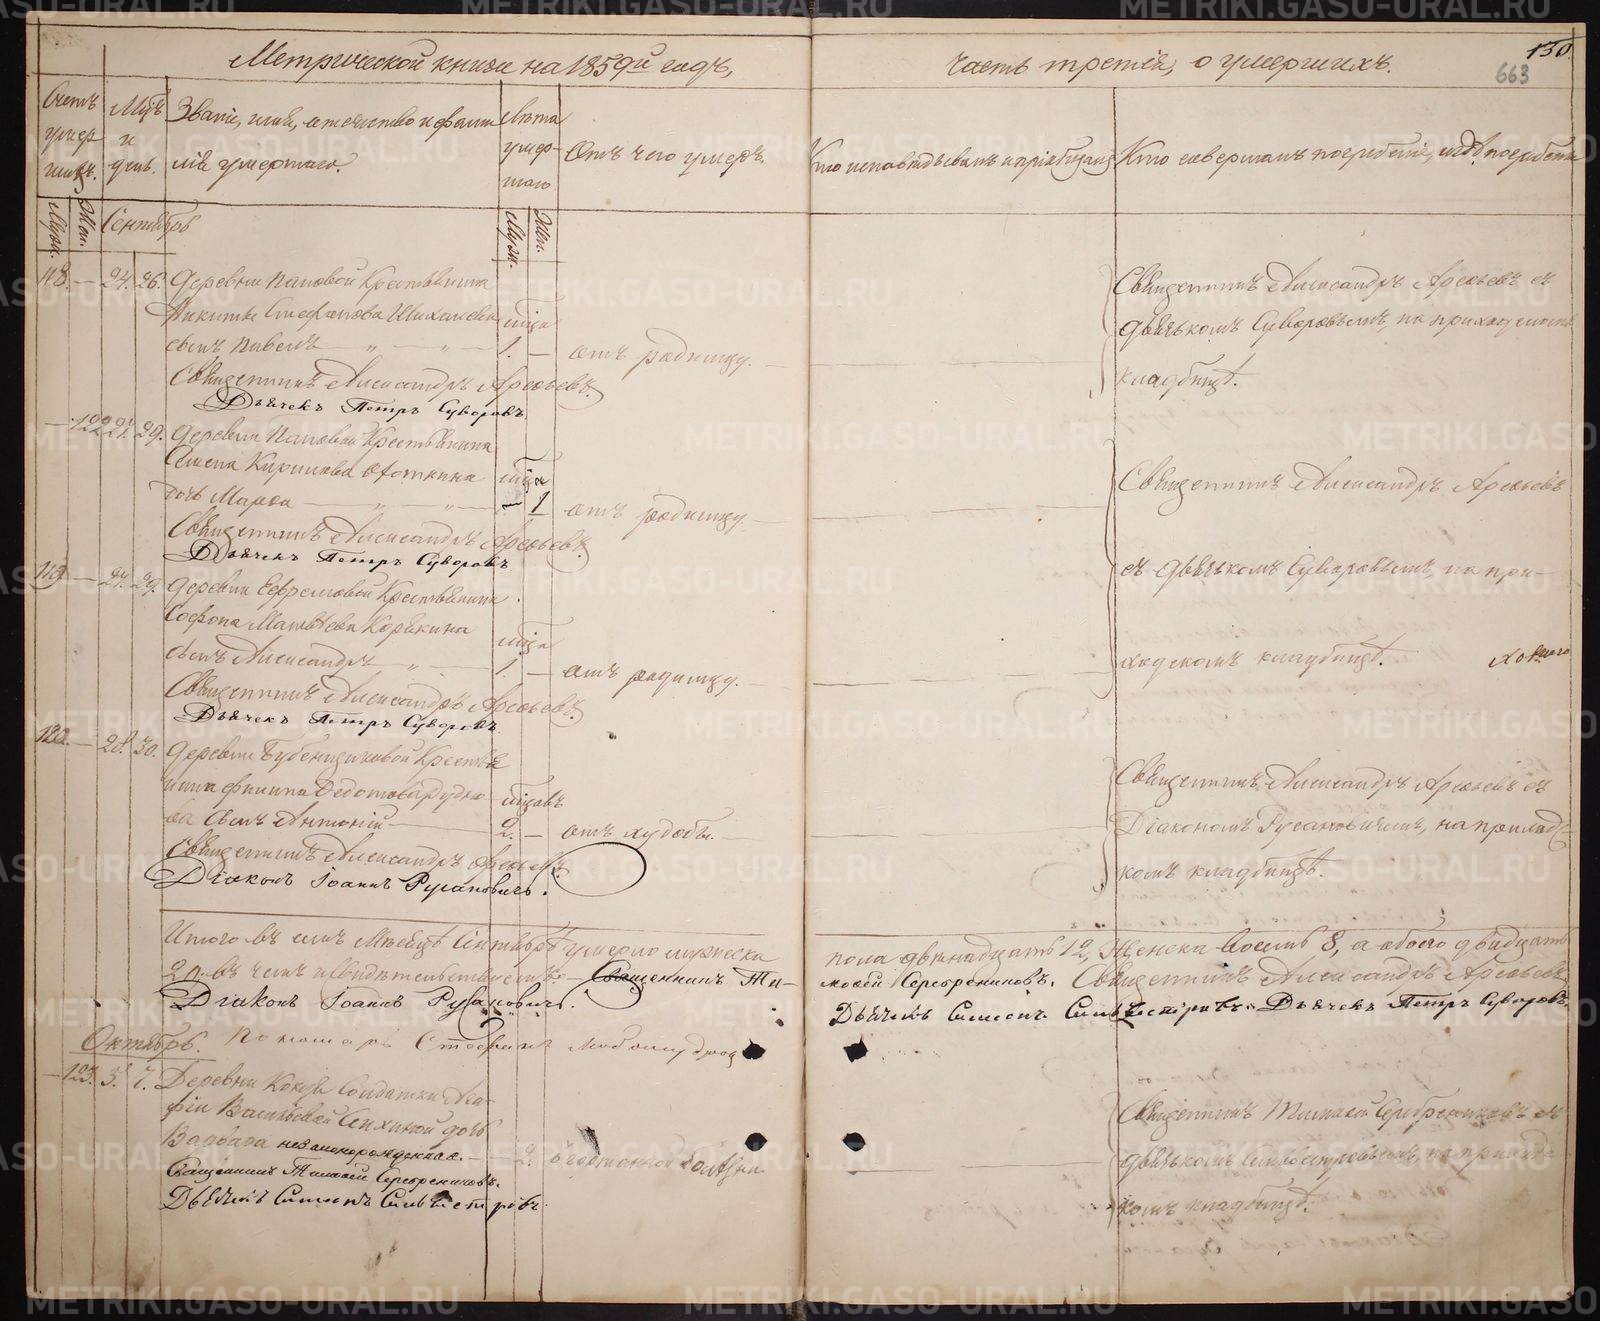 Метрической книги на 1859й годъ,
Часть третія, о умершихъ.
130.
663
Счетъ умершихъ.
Мцъ и день.
Званіе, имя, отчество и фамилія умершаго.
Лѣта умершаго
Отъ чего умеръ.
Кто исповѣдывалъ и пріобщалъ
Кто совершалъ погребеніе, и гдѣ погребены
Муж. Жен.
Сентябрь
Муж. Жен.
118. — 24. 26. Деревни Паловой Крестьянина
Никиты Стефанова
сынъ Павелъ — 1. — отъ родимцу.
Священникъ Александръ Арефьевъ
Дьячекъ Петръ Суворовъ.
Священникъ Александръ Арефьевъ съ
дьячькомъ Суворовымъ, на приходскомъ
кладбищѣ.
— 122. 29. Деревни Паловой Крестьянина
Кирилова
дочь Марѳа — 1 отъ родимцу.
Священникъ Александръ Арефьевъ
Дьячекъ Петръ Суворовъ
Священникъ Александръ Арефьевъ
съ дьячькомъ Суворовымъ, на при-
ходскомъ кладбищѣ.
119. — 27. 29. Деревни Ефремовой Крестьянина
Софона Матвѣева Корякина
сынъ Александръ — 1. — отъ родимцу.
Священникъ Александръ Арефьевъ.
Дьячекъ Петръ Суворовъ
120. — 28. 30. Деревни Крестья
нина Филипа Федотова
сынъ Антоній — 2. — отъ худобы.
Священникъ Александръ Арефьевъ.
Діаконъ Іоаннъ Русановичъ.
Священникъ Александръ Арефьевъ съ
Діакономъ Русановичемъ, на приходс-
комъ кладбищѣ.
Итого въ семъ Мѣсяцѣ Сентябрѣ умерло мужеска
пола двѣнадцать 12, Женска Восемь 8, а обоего двадцать
20. въ чемъ и свидѣтельствуемъ — Священникъ Ти-
мофей Серебрениковъ. Священникъ Александръ Арефьевъ
Діаконъ Іоаннъ Русановичъ.
Дьячекъ Симеонъ Сильвестровъ. Дьячекъ Петръ Суворовъ.
Октябрь.
Пономарь Стефанъ Любомудров
— 123. 3. 7. Деревни Солдатки Ма-
рѳи Васильевой дочь
Варвара незаконорожденная. — 2.
Священникъ Тимофей Серебрениковъ.
Дьячекъ Симеонъ Сильвестровъ.
Священникъ Тимофей Серебрениковъ съ
дьячькомъ Сильвестровымъ, на приходс
комъ кладбищѣ.
METRIKI.GASO-URAL.RU